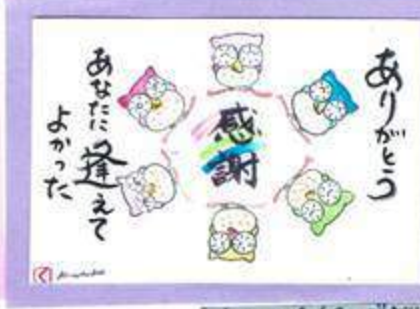 ありがとう
感謝
あなたに逢えて
よかった